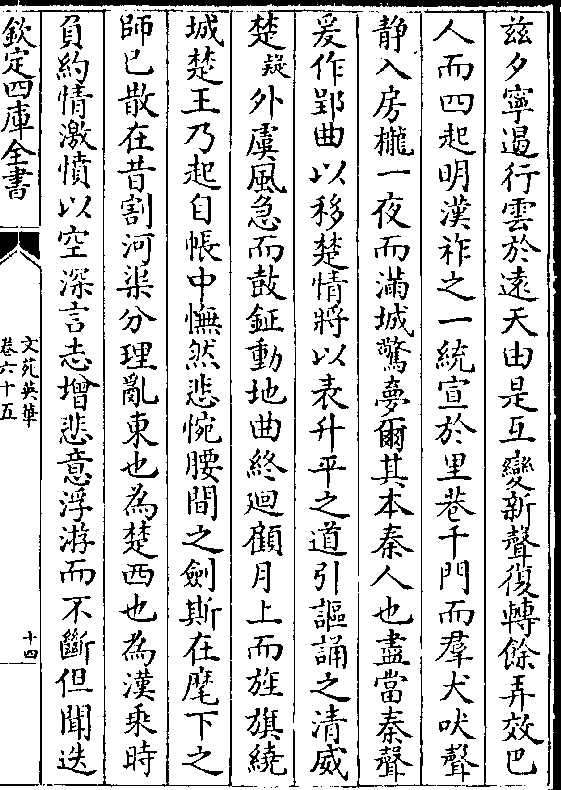 兹夕寧遏行雲於遠天由是互變新聲復轉餘弄效巴
人而四起明漢祚之一統宣於里巷千門而羣犬吠聲
静入房櫳一夜而滿城驚夢爾其本秦人也盡當秦聲
爰作郢曲以移楚情將以表升平之道引謳誦之清威
楚疑外虞風急而鼓鉦動地曲終迴顧月上而旌旗繞
城楚王乃起自帳中憮然悲惋腰間之劍斯在麾下之
師已散在昔割河渠分理亂東也為楚西也為漢乘時
負約情激憤以空深言志增悲意浮游而不斷但聞迭
欽定四庫全書
文苑英華
卷六十五
十四